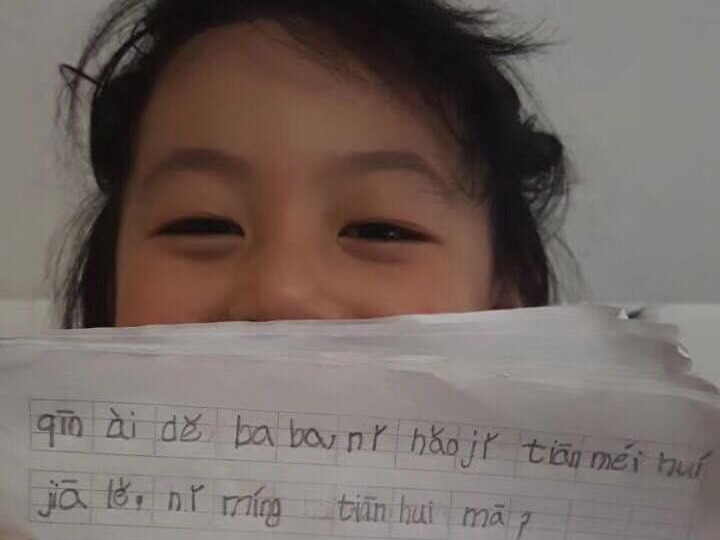 qīn ài dě ba ba, nǐ hǎo jǐ tiān méi huí
jiā lě, nǐ míng tiān hui mā?